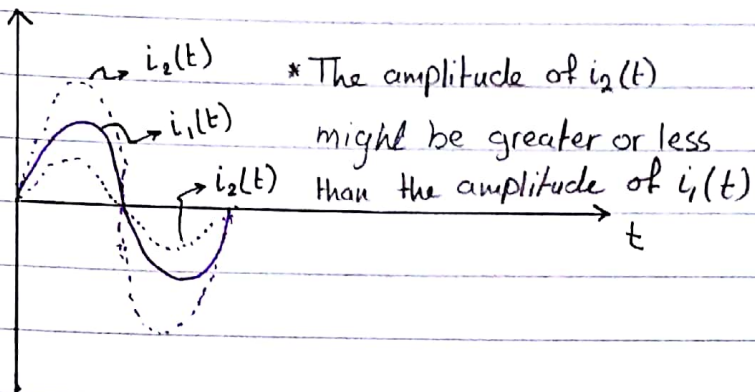 i₂(t) * The amplitude of i₂(t)
i₁(t) might be greater or less
i₂(t) than the amplitude of i₁(t)
t